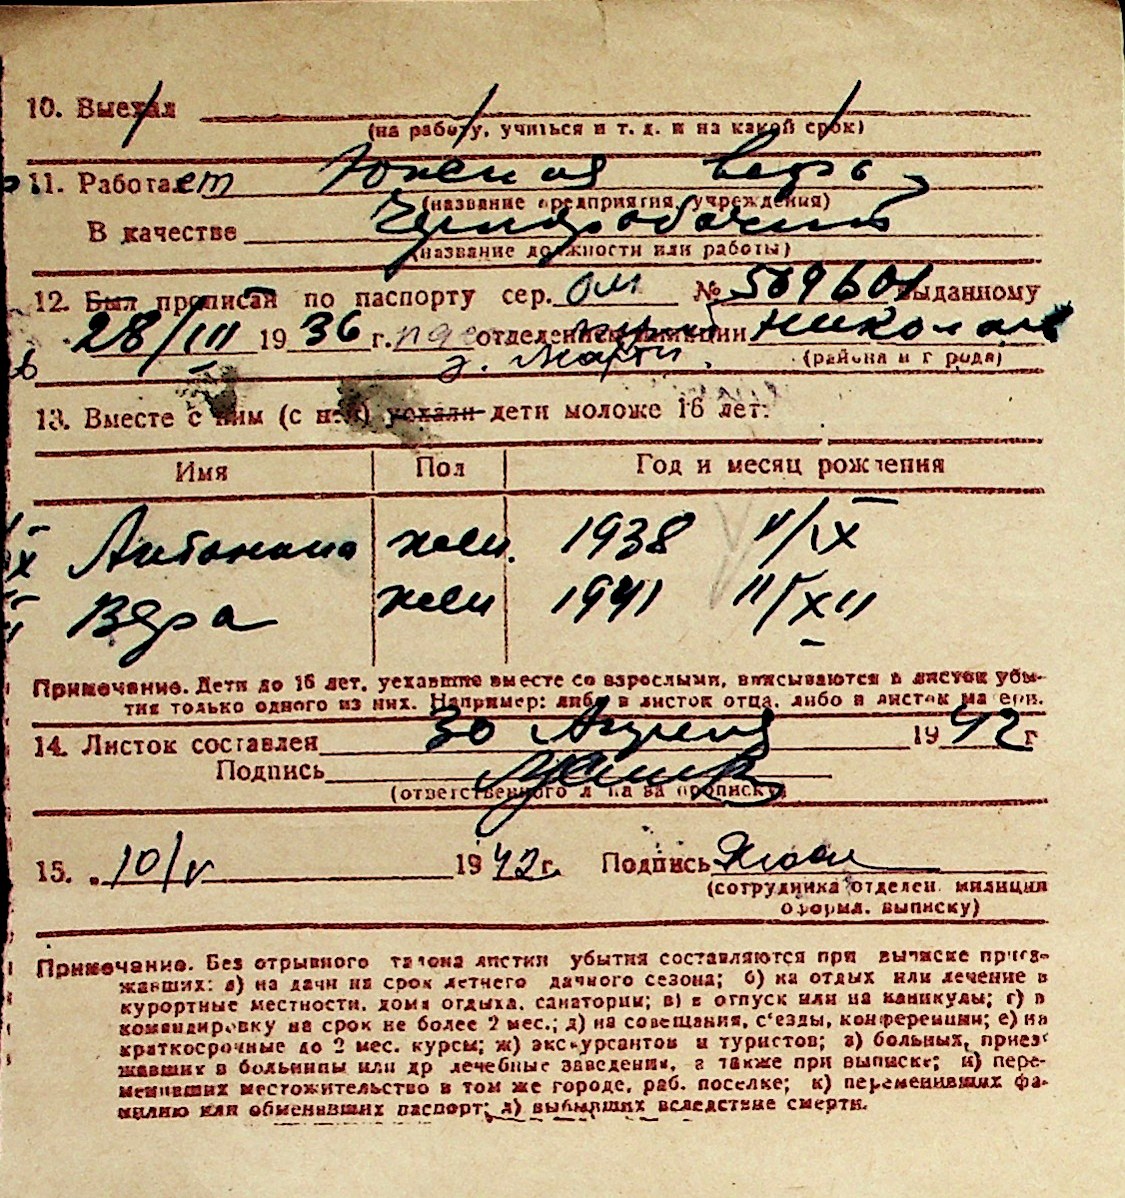 10. Выехал
(на работу, учиться и т. д. и на какой срок)
11. Работает Южная верфь
(название предприятия, учреждения)
В качестве Чернорабочий
(название должности или работы)
12. Был прописан по паспорту сер. ОМ № 569601 выданному
28/III 1936 г. отделением милиции Николаев
г. Марти. (района и города)
13. Вместе с ним (с ней) уехали дети моложе 16 лет:
Имя Пол Год и месяц рождения
Антонина жен. 1938 V/IX
Вера жен 1941 II/XII
Примечание. Дети до 16 лет, уехавшие вместе со взрослыми, вписываются в листок убы-
тия только одного из них. Например: либо в листок отца, либо в листок матери.
14. Листок составлен 30 Апреля 1942 г
Подпись
(ответственного л ца за прописку)
15. 10/V 1942 г. Подпись
(сотрудника отделен. милиции
оформл. выписку)
Примечание. Без отрывного талона листки убытия составляются при выписке приез-
жавших: а) на дачи на срок летнего дачного сезона; б) на отдых или лечение в
курортные местности, дома отдыха, санатории; в) в отпуск или на каникулы; г) в
командировку на срок не более 2 мес.; д) на совещания, с'езды, конференции; е) на
краткосрочные до 2 мес. курсы; ж) экскурсантов и туристов; з) больных, приез-
жавших в больницы или др лечебные заведения, а также при выписке; и) пере-
менивших местожительство в том же городе, раб. поселке; к) переменивших фа-
милию или обменявших паспорт; л) выбывших вследствие смерти.